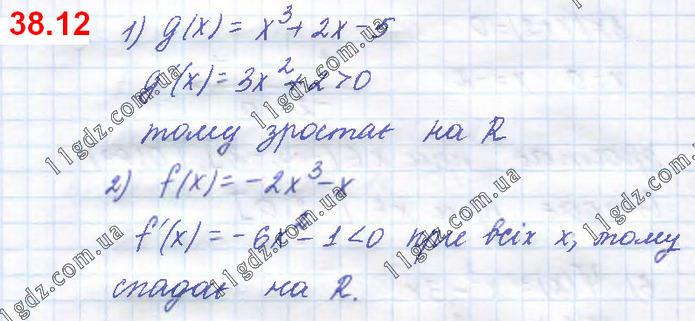 38.12
1) g(x) = x³ + 2x - 5
g'(x) = 3x² + 2 > 0
тому зростає на R
2) f(x) = -2x³ - x
f'(x) = -6x² - 1 < 0 при всіх x, тому
спадає на R.
11gdz.com.ua
11gdz.com.ua
11gdz.com.ua
11gdz.com.ua
11gdz.com.ua
11gdz.com.ua